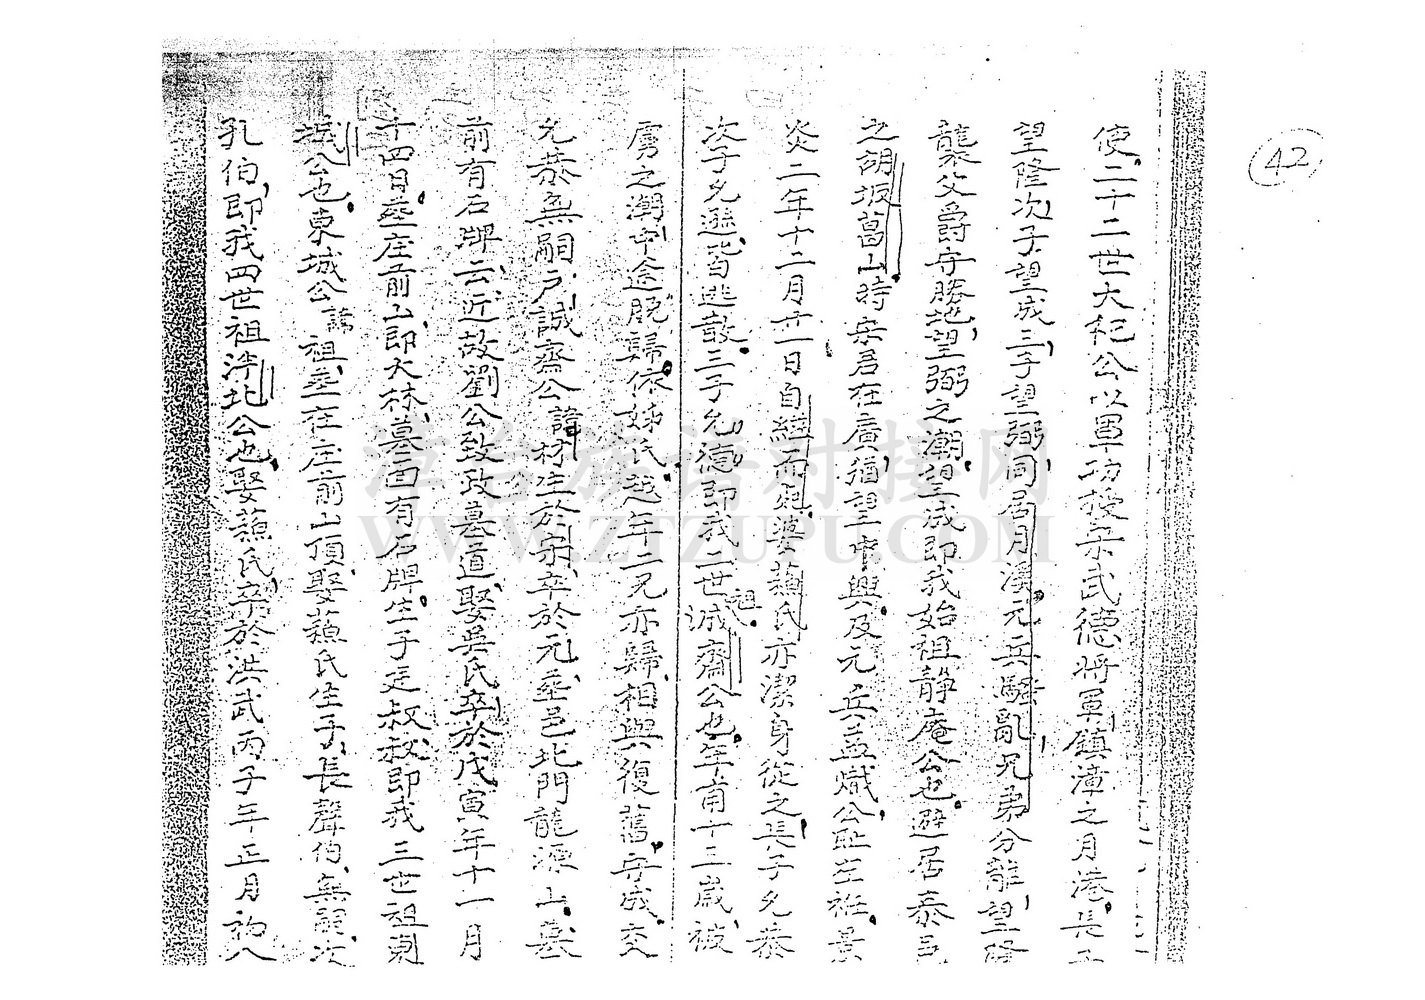 42
使二十二世大祀公以軍功授宋武德將軍鎮漳之月港長子
望隆次子望成三子望弼同居月溪元兵騷亂兄弟分離望隆
襲父爵守勝地望弼之潮望成即我始祖靜庵公也避居泰邑
之胡坂葛山時宋君在廣猶望中興及元兵益熾公恥左袵景
炎二年十二月廿一日自經而婆蘓氏亦潔身從之長子允恭
次子允遜皆逃散三子允德即我二世祖誠齋公也年甫十三歲被
虜之潮中途脫歸依姊氏越年二兄亦歸相與復舊守成交
允恭無嗣戶誠齋公諱材生於宋卒於元葬邑北門龍源山墓
前有石牌云近故劉公致政墓道娶吳氏卒於戊寅年十一月
十四日葬庄前山即大林墓面有石牌生子廷叔叔即我三世祖東
城公也東城公諱祖葬在庄前山頂娶蘓氏生子長聲伯無嗣次
孔伯即我四世祖泮北公也娶蘓氏卒於洪武丙子年正月初八
漳台族谱对接网
WWW.ZTZUPU.COM